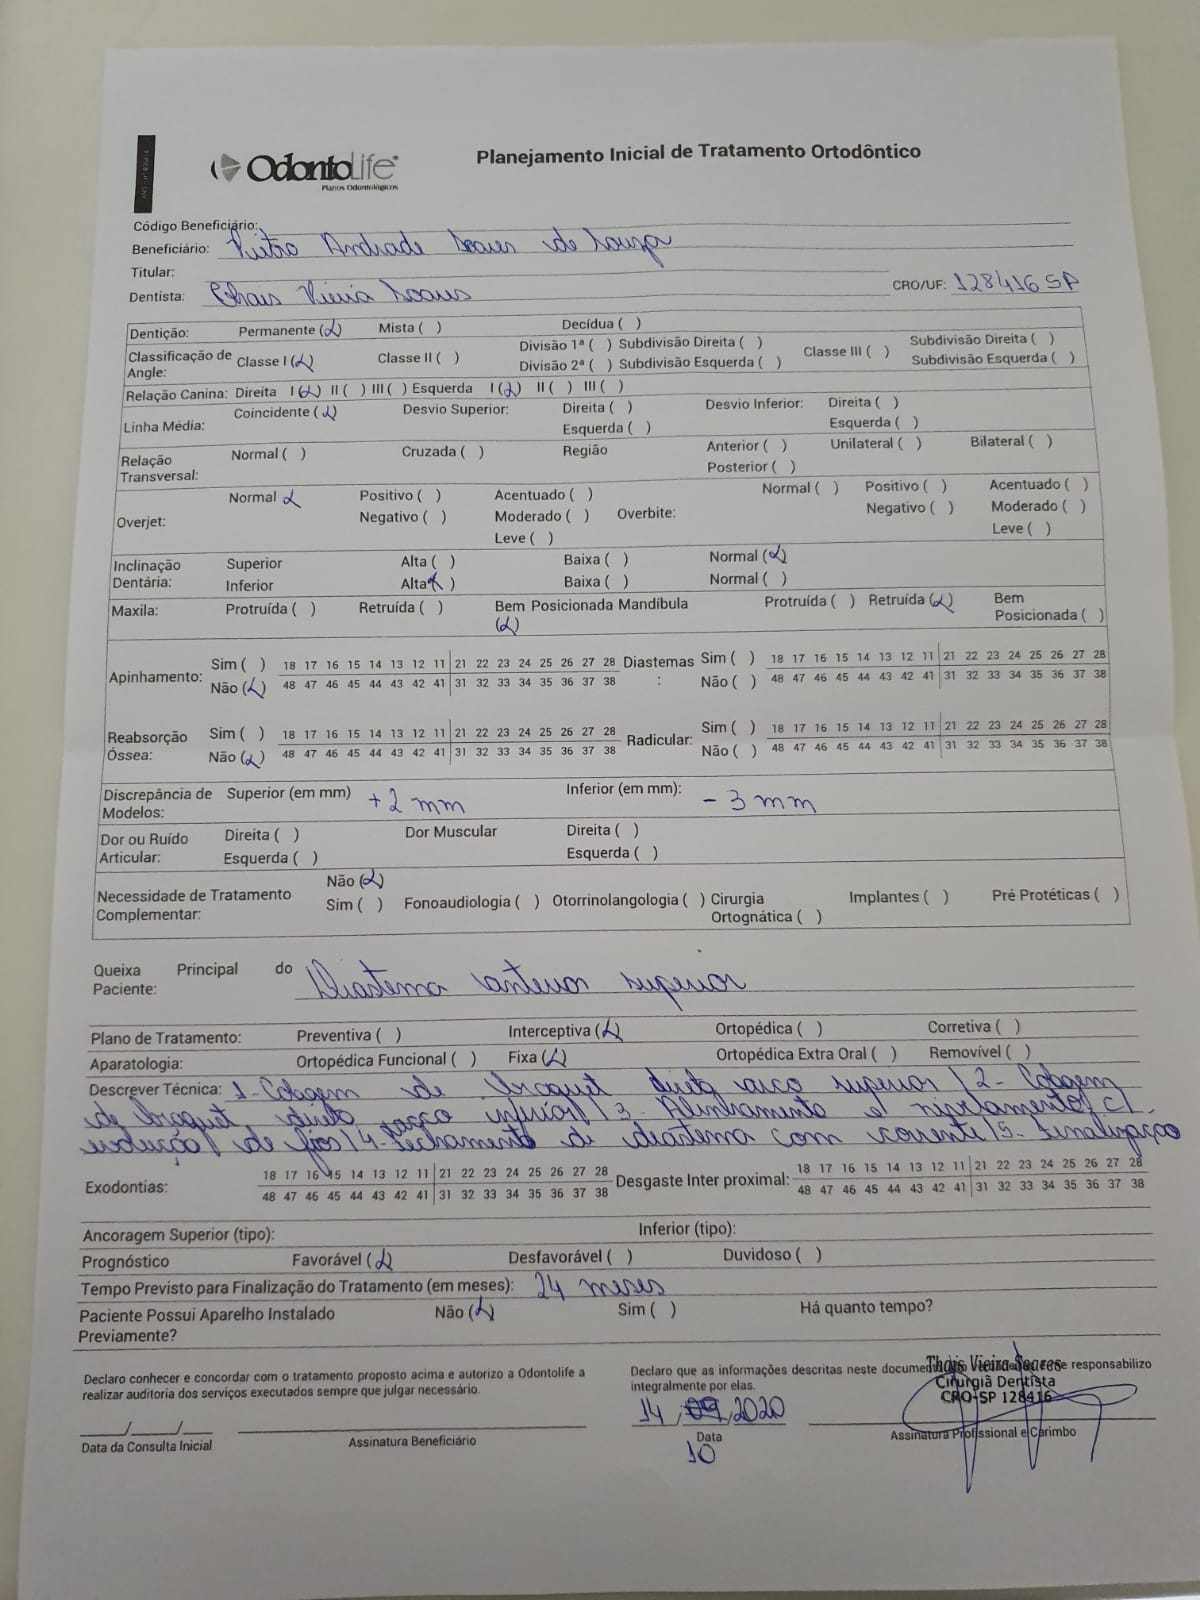 OdontoLife
Planos Odontológicos
Planejamento Inicial de Tratamento Ortodôntico
Código Beneficiário:
Beneficiário: Pietro Andrade Soares de Souza
Titular:
Dentista: Thais Vieira Soares CRO/UF: 128416 SP
Dentição: Permanente (X) Mista ( ) Decídua ( )
Classificação de Angle: Classe I (X) Classe II ( ) Divisão 1ª ( ) Subdivisão Direita ( ) Classe III ( ) Subdivisão Direita ( )
Divisão 2ª ( ) Subdivisão Esquerda ( ) Subdivisão Esquerda ( )
Relação Canina: Direita I (X) II ( ) III ( ) Esquerda I (X) II ( ) III ( )
Linha Média: Coincidente (X) Desvio Superior: Direita ( ) Desvio Inferior: Direita ( )
Esquerda ( ) Esquerda ( )
Relação Transversal: Normal ( ) Cruzada ( ) Região Anterior ( ) Unilateral ( ) Bilateral ( )
Posterior ( )
Overjet: Normal X Positivo ( ) Acentuado ( ) Overbite: Normal ( ) Positivo ( ) Acentuado ( )
Negativo ( ) Moderado ( ) Negativo ( ) Moderado ( )
Leve ( ) Leve ( )
Inclinação Dentária: Superior Alta ( ) Baixa ( ) Normal (X)
Inferior Alta (X) Baixa ( ) Normal ( )
Maxila: Protruída ( ) Retruída ( ) Bem Posicionada (X) Mandíbula Protruída ( ) Retruída (X) Bem Posicionada ( )
Apinhamento: Sim ( ) 18 17 16 15 14 13 12 11 21 22 23 24 25 26 27 28 Diastemas : Sim ( ) 18 17 16 15 14 13 12 11 21 22 23 24 25 26 27 28
Não (X) 48 47 46 45 44 43 42 41 31 32 33 34 35 36 37 38 Não ( ) 48 47 46 45 44 43 42 41 31 32 33 34 35 36 37 38
Reabsorção Óssea: Sim ( ) 18 17 16 15 14 13 12 11 21 22 23 24 25 26 27 28 Radicular: Sim ( ) 18 17 16 15 14 13 12 11 21 22 23 24 25 26 27 28
Não (X) 48 47 46 45 44 43 42 41 31 32 33 34 35 36 37 38 Não ( ) 48 47 46 45 44 43 42 41 31 32 33 34 35 36 37 38
Discrepância de Modelos: Superior (em mm) +2 mm Inferior (em mm): - 3 mm
Dor ou Ruído Articular: Direita ( ) Dor Muscular Direita ( )
Esquerda ( ) Esquerda ( )
Necessidade de Tratamento Complementar: Não (X)
Sim ( ) Fonoaudiologia ( ) Otorrinolangologia ( ) Cirurgia Ortognática ( ) Implantes ( ) Pré Protéticas ( )
Queixa Principal do Paciente: Diastema anterior superior
Plano de Tratamento: Preventiva ( ) Interceptiva (X) Ortopédica ( ) Corretiva ( )
Aparatologia: Ortopédica Funcional ( ) Fixa (X) Ortopédica Extra Oral ( ) Removível ( )
Descrever Técnica: 1- Colagem de braquet direta arco superior / 2- Colagem
de braquet direta arco inferior / 3- Alinhamento e nivelamento c/
evolução de fios / 4- Fechamento de diastema com corrente / 5- Finalização
Exodontias: 18 17 16 15 14 13 12 11 21 22 23 24 25 26 27 28 Desgaste Inter proximal: 18 17 16 15 14 13 12 11 21 22 23 24 25 26 27 28
48 47 46 45 44 43 42 41 31 32 33 34 35 36 37 38 48 47 46 45 44 43 42 41 31 32 33 34 35 36 37 38
Ancoragem Superior (tipo): Inferior (tipo):
Prognóstico Favorável (X) Desfavorável ( ) Duvidoso ( )
Tempo Previsto para Finalização do Tratamento (em meses): 24 meses
Paciente Possui Aparelho Instalado Previamente? Não (X) Sim ( ) Há quanto tempo?
Declaro conhecer e concordar com o tratamento proposto acima e autorizo a Odontolife a
realizar auditoria dos serviços executados sempre que julgar necessário.
Declaro que as informações descritas neste e responsabilizo
integralmente por elas.
Thais Vieira Soares
Cirurgiã Dentista
CRO-SP 128416
14 / 09 / 2020
10
___/___/___
Data da Consulta Inicial Assinatura Beneficiário Data Assinatura Profissional e Carimbo